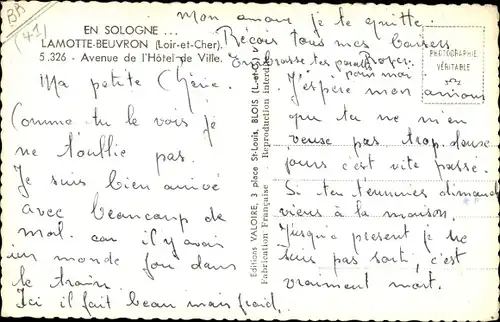 BB
(41)
EN SOLOGNE ...
LAMOTTE-BEUVRON (Loir-et-Cher).
5.326 - Avenue de l'Hôtel de Ville.
Ma petite Chérie.
Comme tu le vois je
ne t'oublie pas.
Je suis bien arrivé
avec beaucoup de
mal. car il y avait
un monde fou dans
le train.
Ici il fait beau mais froid.
Editions VALOIRE, 3 place St-Louis, BLOIS (L.-et-C.)
Fabrication Française Reproduction interdite
PHOTOGRAPHIE
VÉRITABLE
J'espère mon amour
que tu ne m'en
veuse pas trop. deux
jours c'est vite passé.
Si tu t'ennuies dimanche
viens à la maison.
Jusqu'a present je ne
suis pas sorti, c'est
vraiment mort.
Mon amour je te quitte.
Reçois tous mes baisers
embrasse tes parents
pour moi